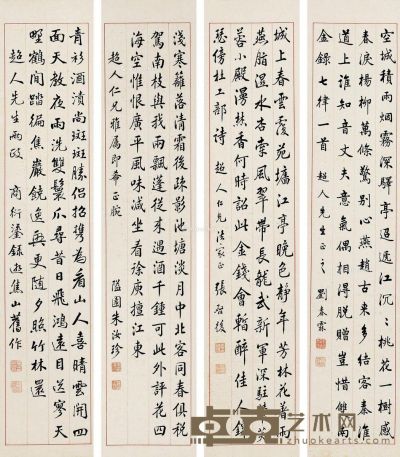 空城積雨烟霧深驛亭迢遞江﹦桃花一樹感
春淚楊柳萬條驚別心燕趙古來多結客秦淮
道上誰知音丈夫意氣偶相得脫贈豈惜雙南
金錄七律一首 超人先生正之 劉春霖
城上春雲覆苑墻江亭晚色靜年芳林花著雨
燕脂溼水荇牽風翠帶長龍武新軍深駐輦芙
蓉小殿謾焚香何時詔此金錢會暫醉佳人錦
瑟傍杜工部詩 超人仁兄法家正 張啟後
淺寒籬落清霜後疎影池塘淡月中北客同春俱税
駕南枝與我兩飄蓬從來遇酒千鍾可此外評花四
海空惟恨廣平風味減坐看徐庾擅江東
超人仁兄雅屬即希正腕 隘園朱汝珍
青衫酒漬尚斑斑勝侶招攜為看山人喜晴雲開四
面天教夜雨洗雙鬟爪尋昔日飛鴻遠目送寥天
野鶴閒踏徧焦巖饒逸興更隨夕照竹林還
超人先生兩政 商衍鎏錄遊焦山舊作
艺术网